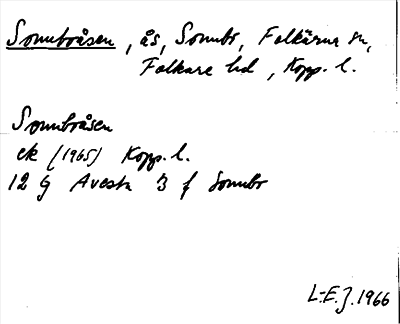 Sonnboåsen, ås, Sonnbo, Folkärna sn,
Folkare hd, Kopp. l.
Sonnboåsen
ek (1965) Kopp. l.
12 G Avesta 3 f Sonnbo
L-E.J. 1966